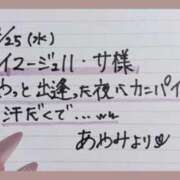 /25(水)
イスージュ川・サ様
やっと出逢った夜にカンパイ
汗だくで…ww
あゆみより